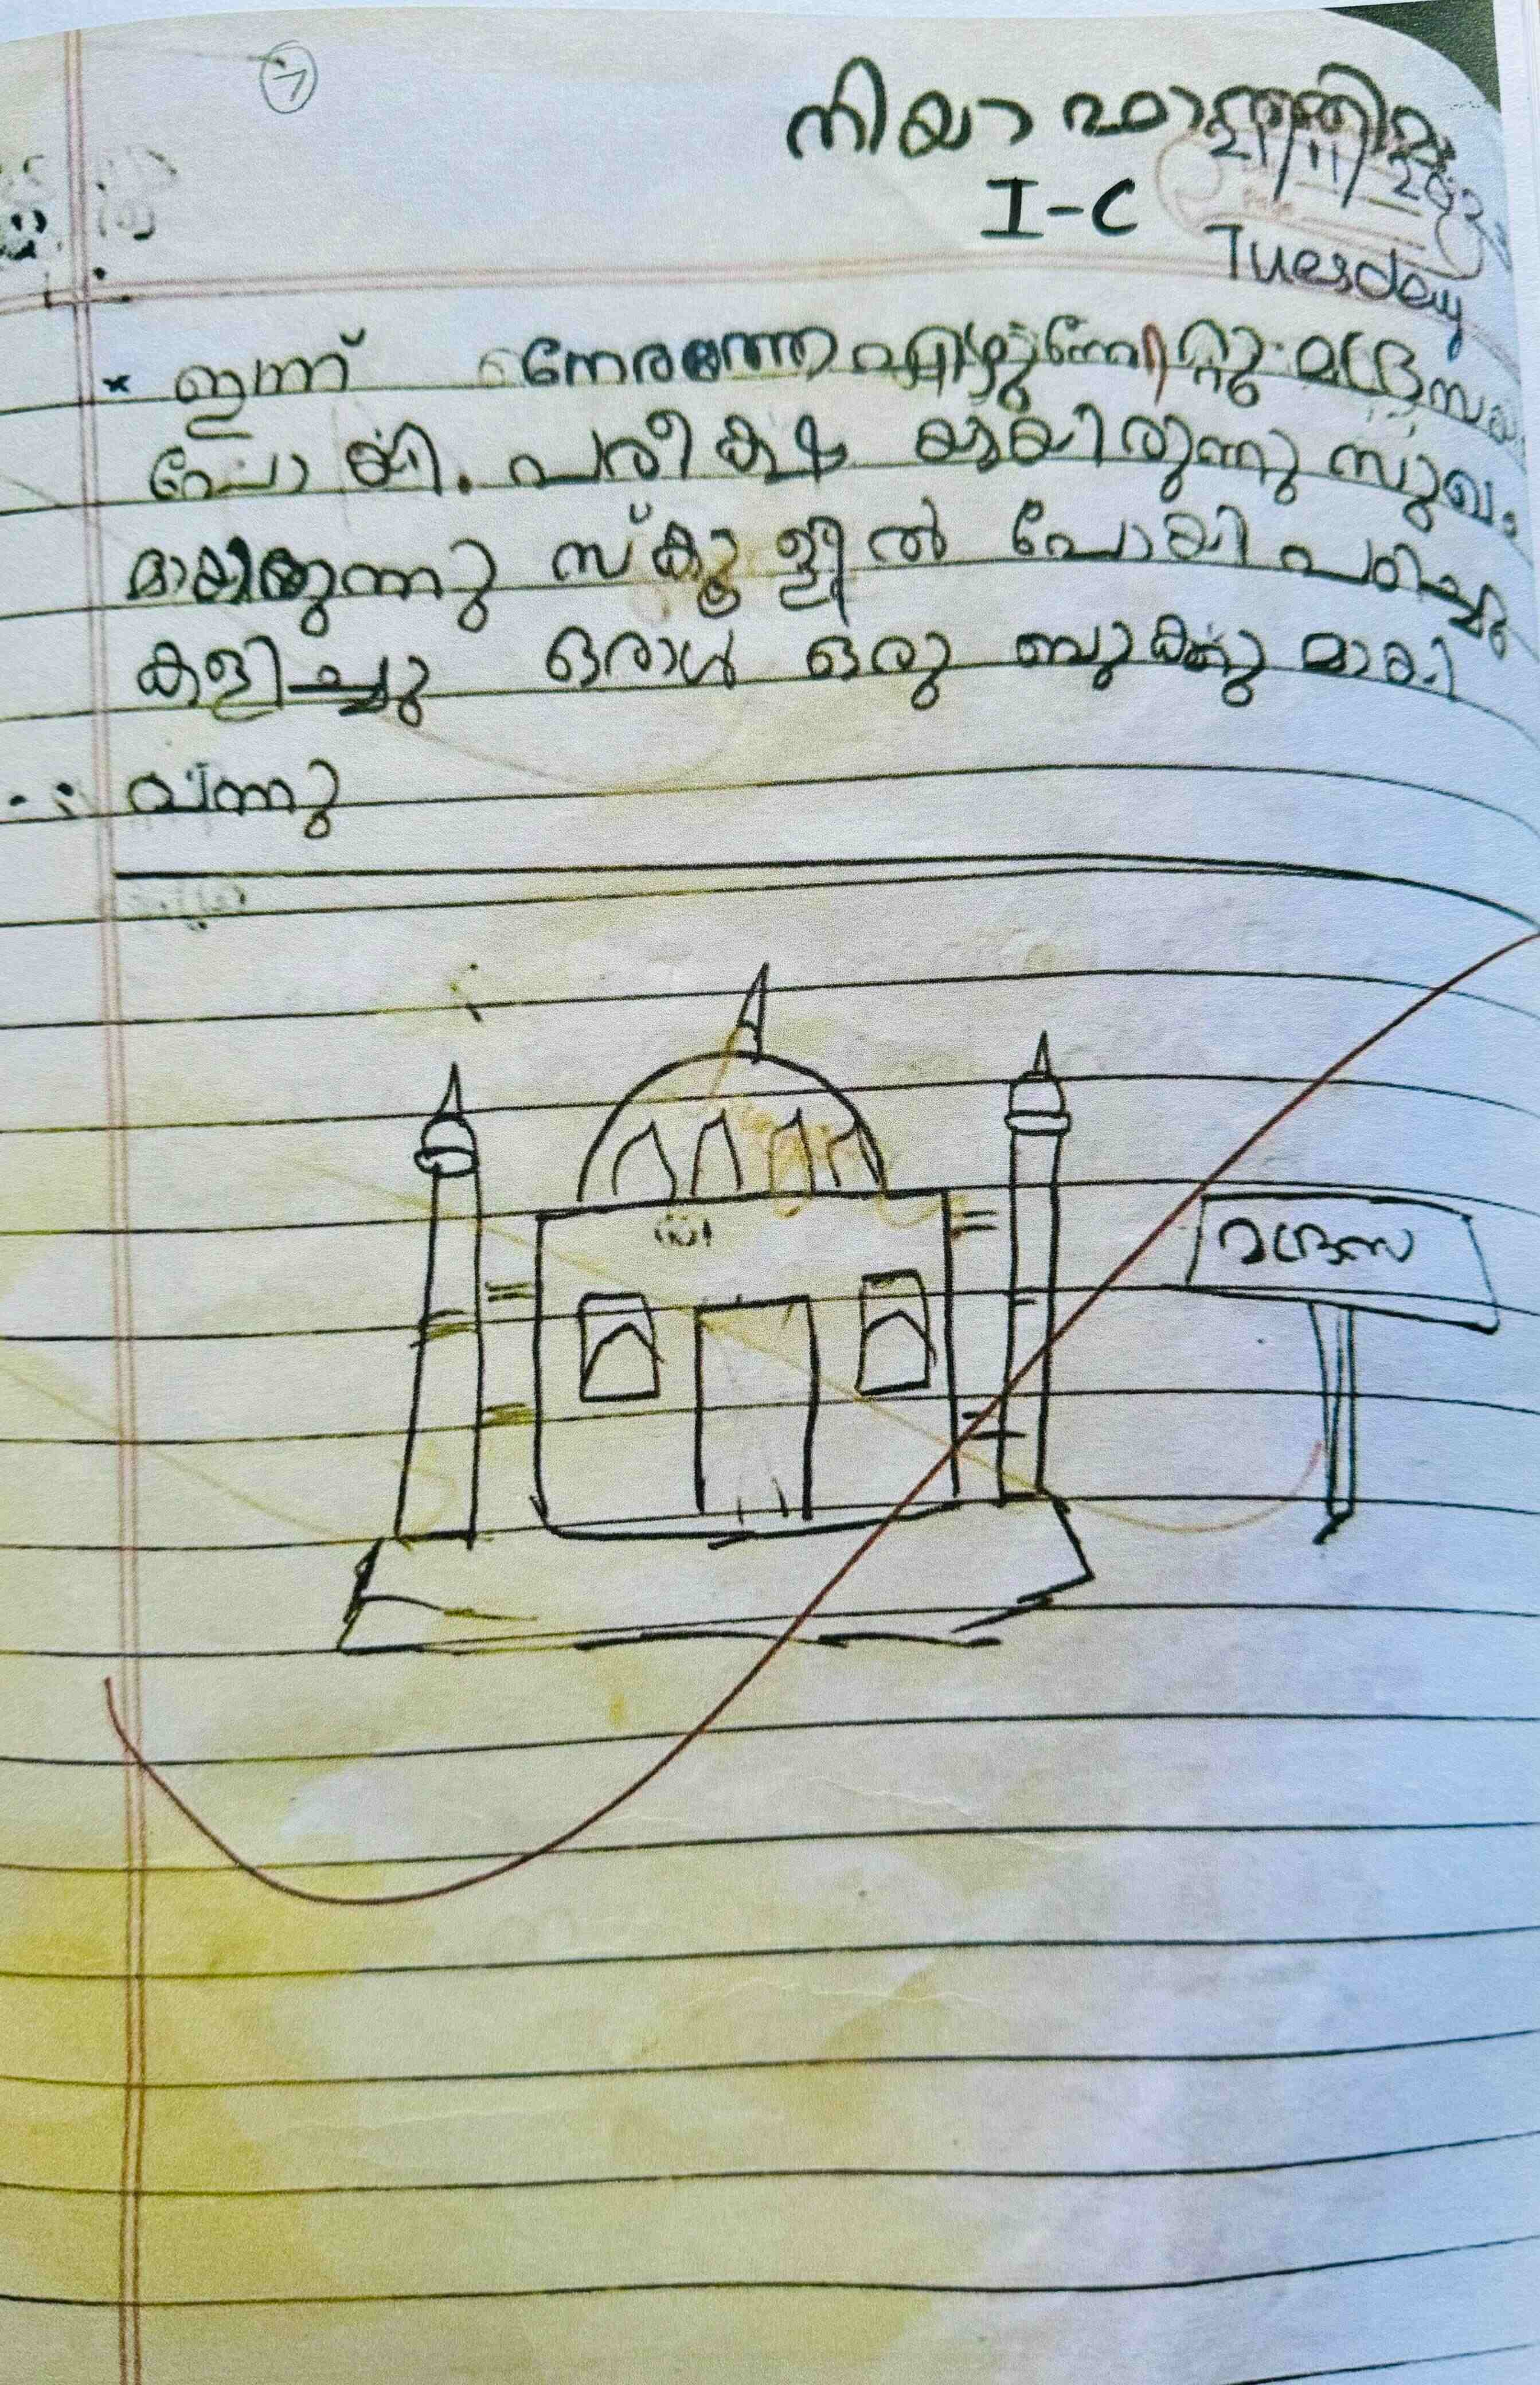 7
നിയാ ഫാത്തിമ
21/11/202
I-C
Tuesday
ഇന്ന് നേരത്തേ എഴുന്നേറ്റു മദ്രസയ
പോയി. പരീക്ഷ യായിരുന്നു സുഖം
മായിരുന്നു സ്കൂളിൽ പോയി പഠിച്ചു
കളിച്ചു ഒരാൾ ഒരു ബുക്കു മായി
വന്നു
മദ്രസ